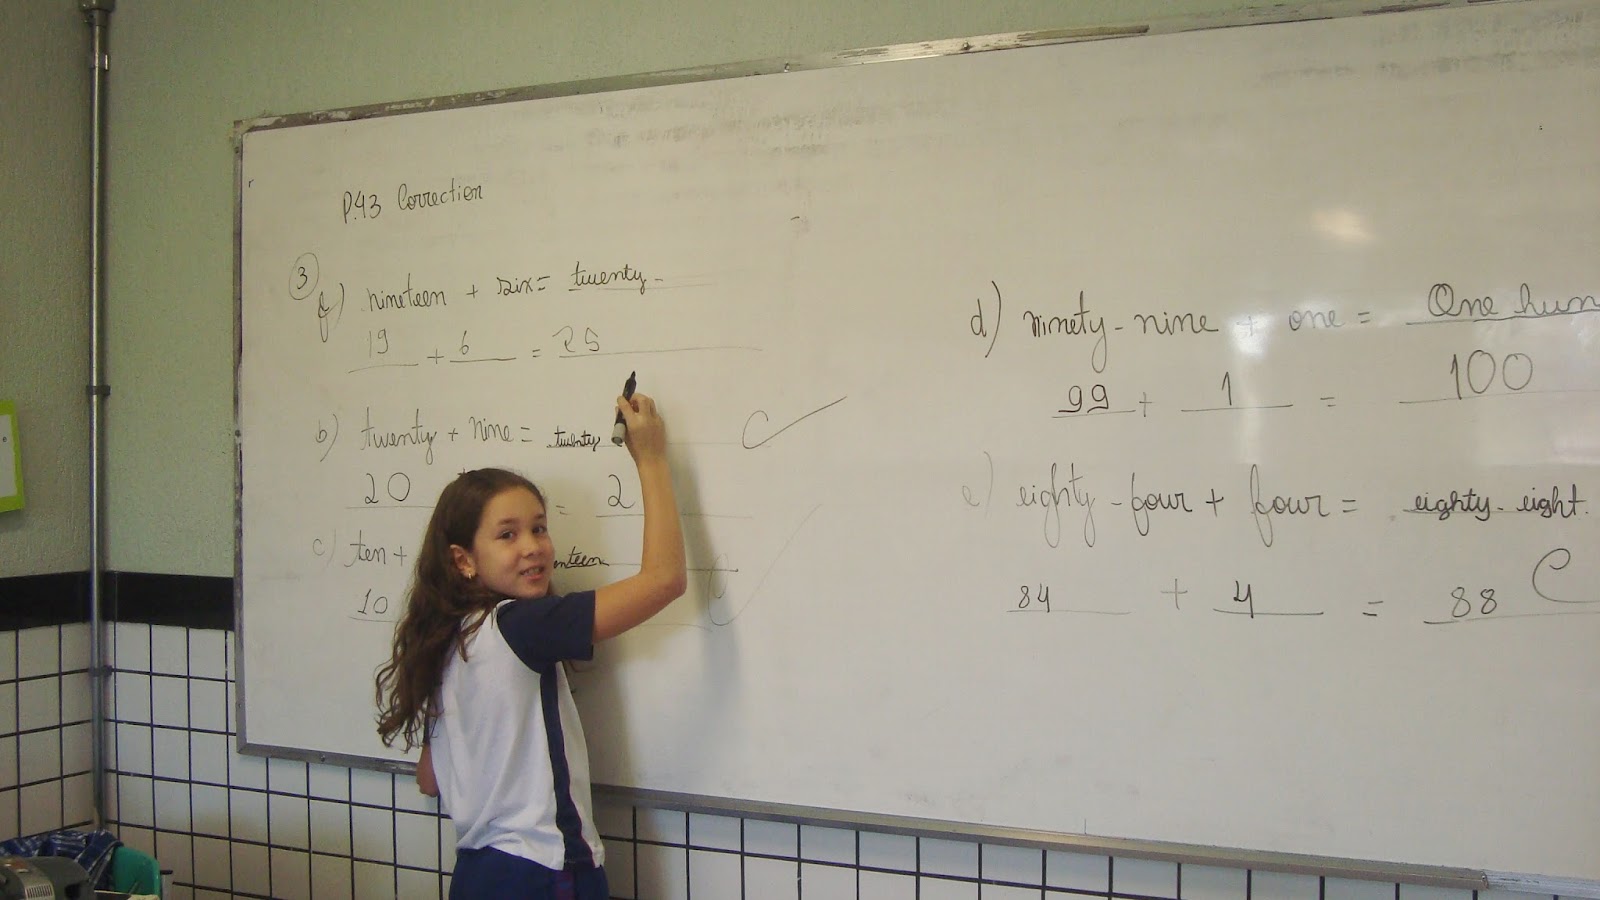 P.43 Correction
3
a) nineteen + six = twenty-
19 + 6 = 25
b) twenty + nine = twenty
20 = 2
c) ten + enteen
10
d) ninety-nine + one = One hun
99 + 1 = 100
e) eighty-four + four = eighty-eight.
84 + 4 = 88
C
C
C